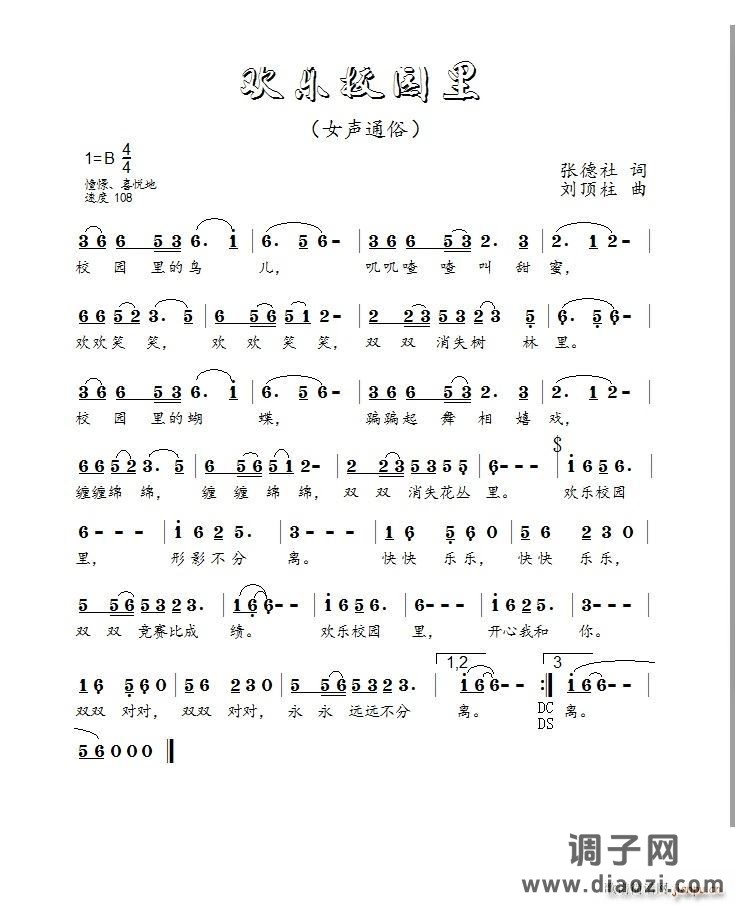 欢乐校园里
（女声通俗）
1=B 4/4
憧憬、喜悦地
速度 108
张德社 词
刘顶柱 曲
3 6 6 5 3 6. i | 6. 5 6 - | 3 6 6 5 3 2. 3 | 2. 1 2 - |
校 园 里的鸟 儿， 叽叽喳 喳叫 甜 蜜，
6 6 5 2 3. 5 | 6 5 6 5 1 2 - | 2 2 3 5 3 2 3 5 | 6. 5 6 - |
欢欢笑 笑， 欢 欢笑 笑， 双 双 消失树 林 里。
3 6 6 5 3 6. i | 6. 5 6 - | 3 6 6 5 3 2. 3 | 2. 1 2 - |
校 园 里的蝴 蝶， 蹁蹁起 舞 相 嬉 戏，
$
6 6 5 2 3. 5 | 6 5 6 5 1 2 - | 2 2 3 5 3 5 5 | 6 - - - | i 6 5 6 |
缠缠绵 绵， 缠 缠绵 绵， 双 双 消失花丛 里。 欢乐校园
6 - - - | i 6 2 5. | 3 - - - | 1 6 5 6 0 | 5 6 2 3 0 |
里， 形影不分 离。 快快 乐乐， 快快 乐乐，
5 5 6 5 3 2 3. | 1 6 6 - - | i 6 5 6. | 6 - - - | i 6 2 5. | 3 - - - |
双 双 竞赛比成 绩。 欢乐校园 里， 开心我和 你。
1,2 3
1 6 5 6 0 | 5 6 2 3 0 | 5 5 6 5 3 2 3. | i 6 6 - - :| i 6 6 - - |
双双 对对， 双双 对对， 永 永 远远不分 离。 DC 离。
DS
5 6 0 0 0 ||
调子网
www.diaozi.com